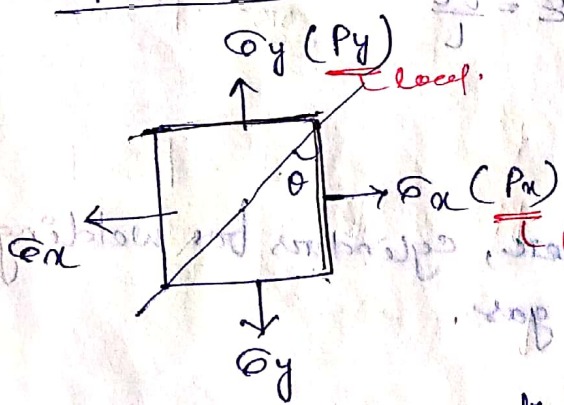 σy (Py)
load.
θ
σx (Px)
σx
σy